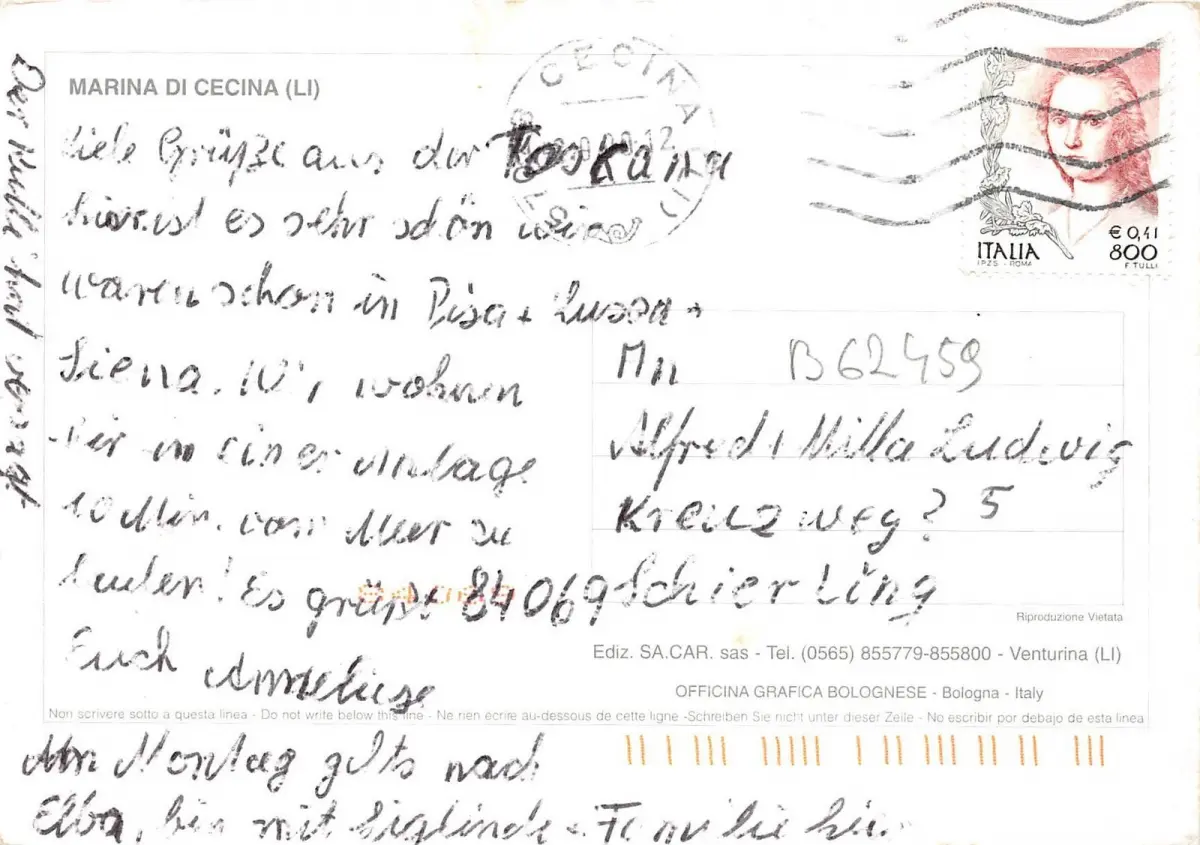 MARINA DI CECINA (LI)
CECINA
(LI)
ITALIA
€ 0,41
800
I.P.Z.S. - ROMA
F. TULLI
Viele Grüße aus der Toskana
hier ist es sehr schön wir
waren schon in Pisa + Lussa +
Siena. Wir wohnen
hir in einer Anlage
10 Min. vom Meer zu
laufen! Es grüßt
Euch Anneliese
Am Montag gehts nach
Elba, bin mit Siglinde + Familie hier
Der Willi hat versagt
B62459
An
Alfred + Milla Ludwig
Kreuzweg? 5
84069 Schierling
84069
Riproduzione Vietata
Ediz. SA.CAR. sas - Tel. (0565) 855779-855800 - Venturina (LI)
OFFICINA GRAFICA BOLOGNESE - Bologna - Italy
Non scrivere sotto a questa linea - Do not write below this line - Ne rien écrire au-dessous de cette ligne -Schreiben Sie nicht unter dieser Zeile - No escribir por debajo de esta linea